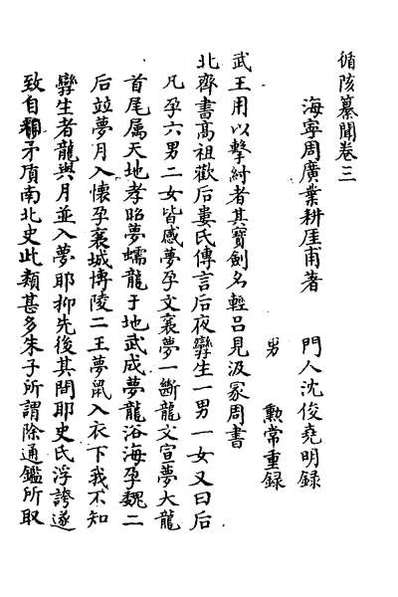 循陔纂聞卷三
海寧周廣業耕厓甫著　門人沈俊堯明錄
男　勲常重録
武王用以擊紂者其寶劍名輕呂見汲冢周書
北齊書髙祖歡后婁氏傳言后夜孿生一男一女又曰后
凡孕六男二女皆感夢孕文襄夢一斷龍文宣夢大龍
首尾属天地孝昭夢蠕龍于地武成夢龍浴海孕魏二
后竝夢月入懷孕襄城博陵二王夢鼠入衣下我不知
孿生者龍與月並入夢耶抑先後其間耶史氏浮誇遂
致自相矛盾南北史此類甚多朱子所謂除通鑑所取